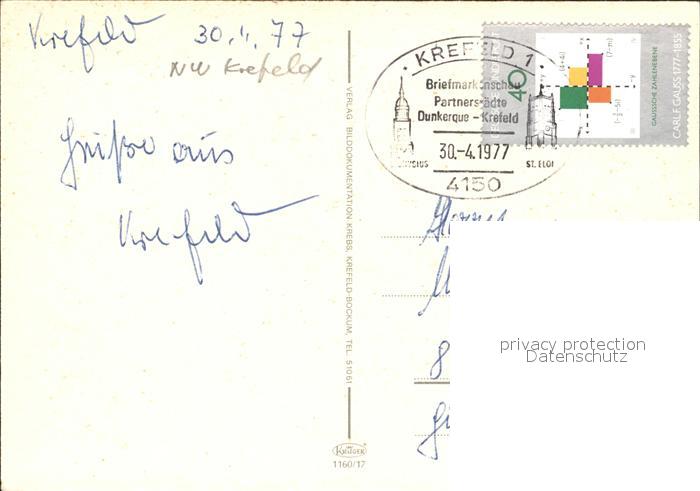 Krefeld 30.4.77
NW Krefeld
Grüße aus
Krefeld
VERLAG BILDDOKUMENTATION KREBS, KREFELD-BOCKUM, TEL. 51061
KRÜGER
1160/17
KREFELD 1
Briefmarkenschau
Partnerstädte
Dunkerque - Krefeld
30.-4.1977
ST. ELOI
4150
40
GAUSSSCHE ZAHLENEBENE
CARL F. GAUSS 1777-1855
privacy protection
Datenschutz
8